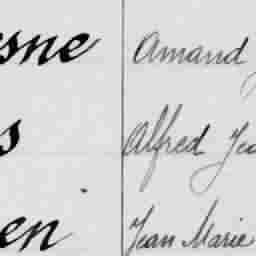 esne Amand
s Alfred Jea
en Jean Marie